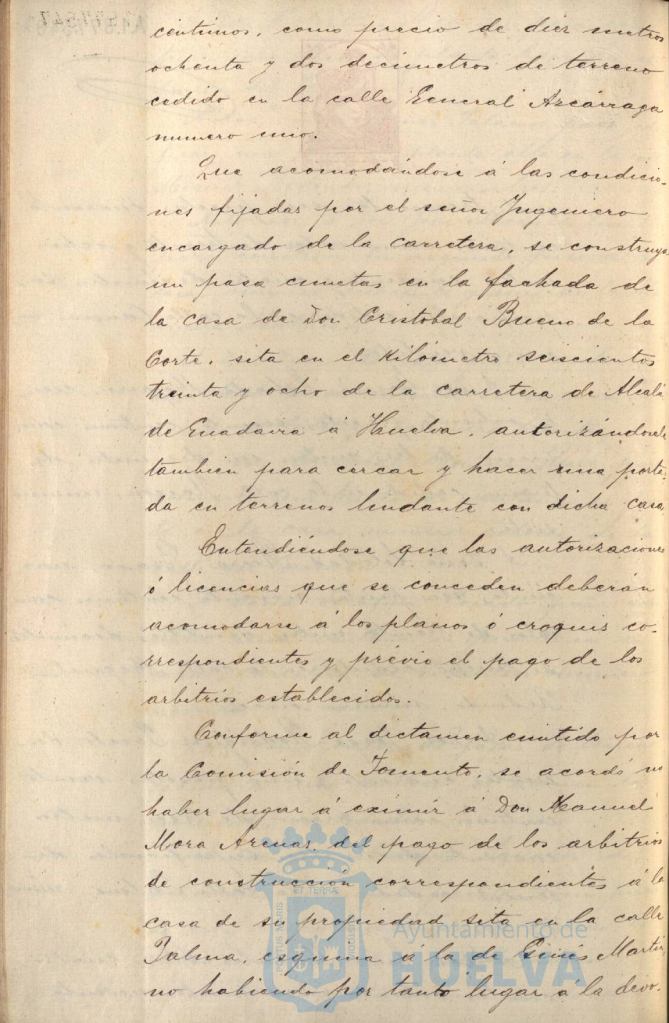 centimos, como precio de diez metros
ochenta y dos decimetros de terreno
cedido en la calle General Azcárraga
numero uno.
Que acomodándose á las condicio-
nes fijadas por el señor Ingeniero
encargado de la carretera, se construya
un pasa cunetas en la fachada de
la casa de Don Cristobal Bueno de la
Corte, sita en el kilómetro seiscientos
treinta y ocho de la carretera de Alcalá
de Guadaira á Huelva, autorizándosele
tambien para cercar y hacer una porta-
da en terrenos lindante con dicha casa
Entendiéndose que las autorizaciones
ó licencias que se conceden deberán
acomodarse á los planos ó croquis co-
rrespondientes y prévio el pago de los
arbitrios establecidos.
Conforme al dictamen emitido por
la Comisión de Fomento, se acordó no
haber lugar á eximir á Don Manuel
Mora Arenas, del pago de los arbitrios
de construcción correspondientes á la
casa de su propiedad sita en la calle
Palma, esquina á la de Ginés Martín,
no habiendo por tanto lugar a la devo-
Ayuntamiento de
HUELVA